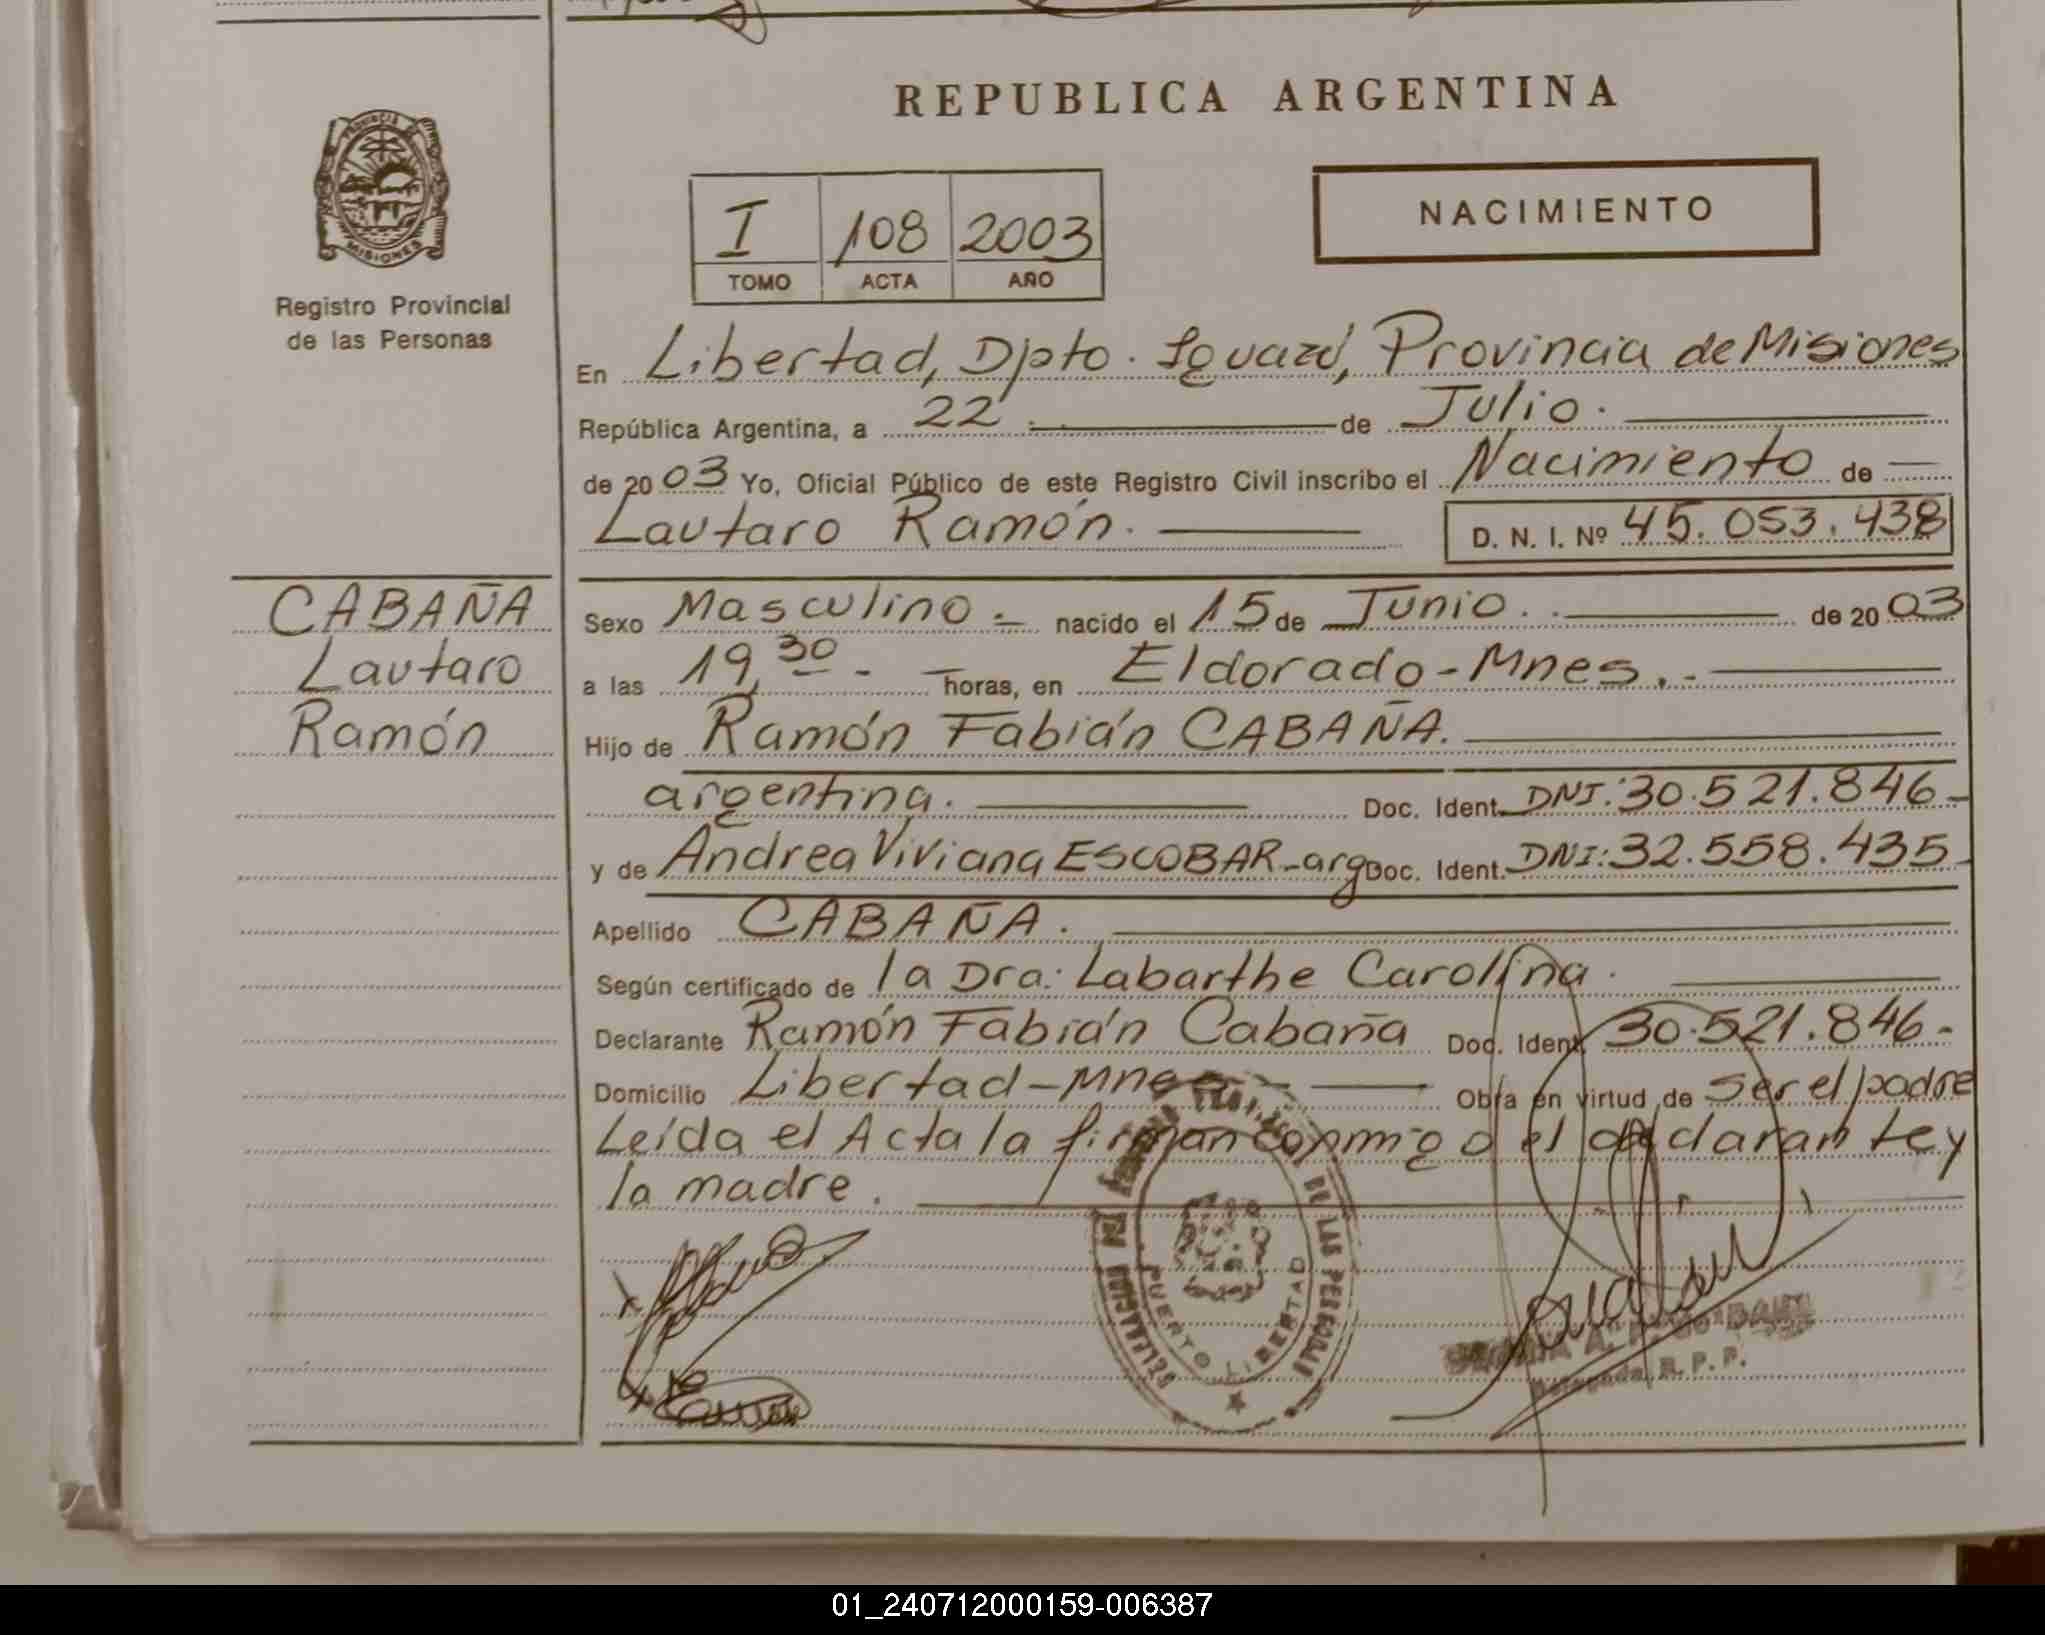 REPUBLICA ARGENTINA
PROVINCIA DE
MISIONES
Registro Provincial
de las Personas
I 108 2003
TOMO ACTA AÑO
NACIMIENTO
En Libertad, Dpto. Iguazú, Provincia de Misiones
República Argentina, a 22 de Julio.
de 2003 Yo, Oficial Público de este Registro Civil inscribo el Nacimiento de
Lautaro Ramón. D. N. I. Nº 45.053.438
CABAÑA
Lautaro
Ramón
Sexo Masculino nacido el 15 de Junio. de 2003
a las 19,30 horas, en Eldorado-Mnes.
Hijo de Ramón Fabián CABAÑA.
argentina. Doc. Ident. DNI: 30.521.846-
y de Andrea Viviana ESCOBAR-arg Doc. Ident. DNI: 32.558.435-
Apellido CABAÑA.
Según certificado de la Dra: Labarthe Carolina.
Declarante Ramón Fabián Cabaña Doc. Ident. 30.521.846-
Domicilio Libertad-Mnes Obra en virtud de ser el padre
Leída el Acta la firman conmigo el declarante y
la madre.
DE LAS PERSONAS
PUERTO LIBERTAD
Delegada R. P. P.
01_240712000159-006387